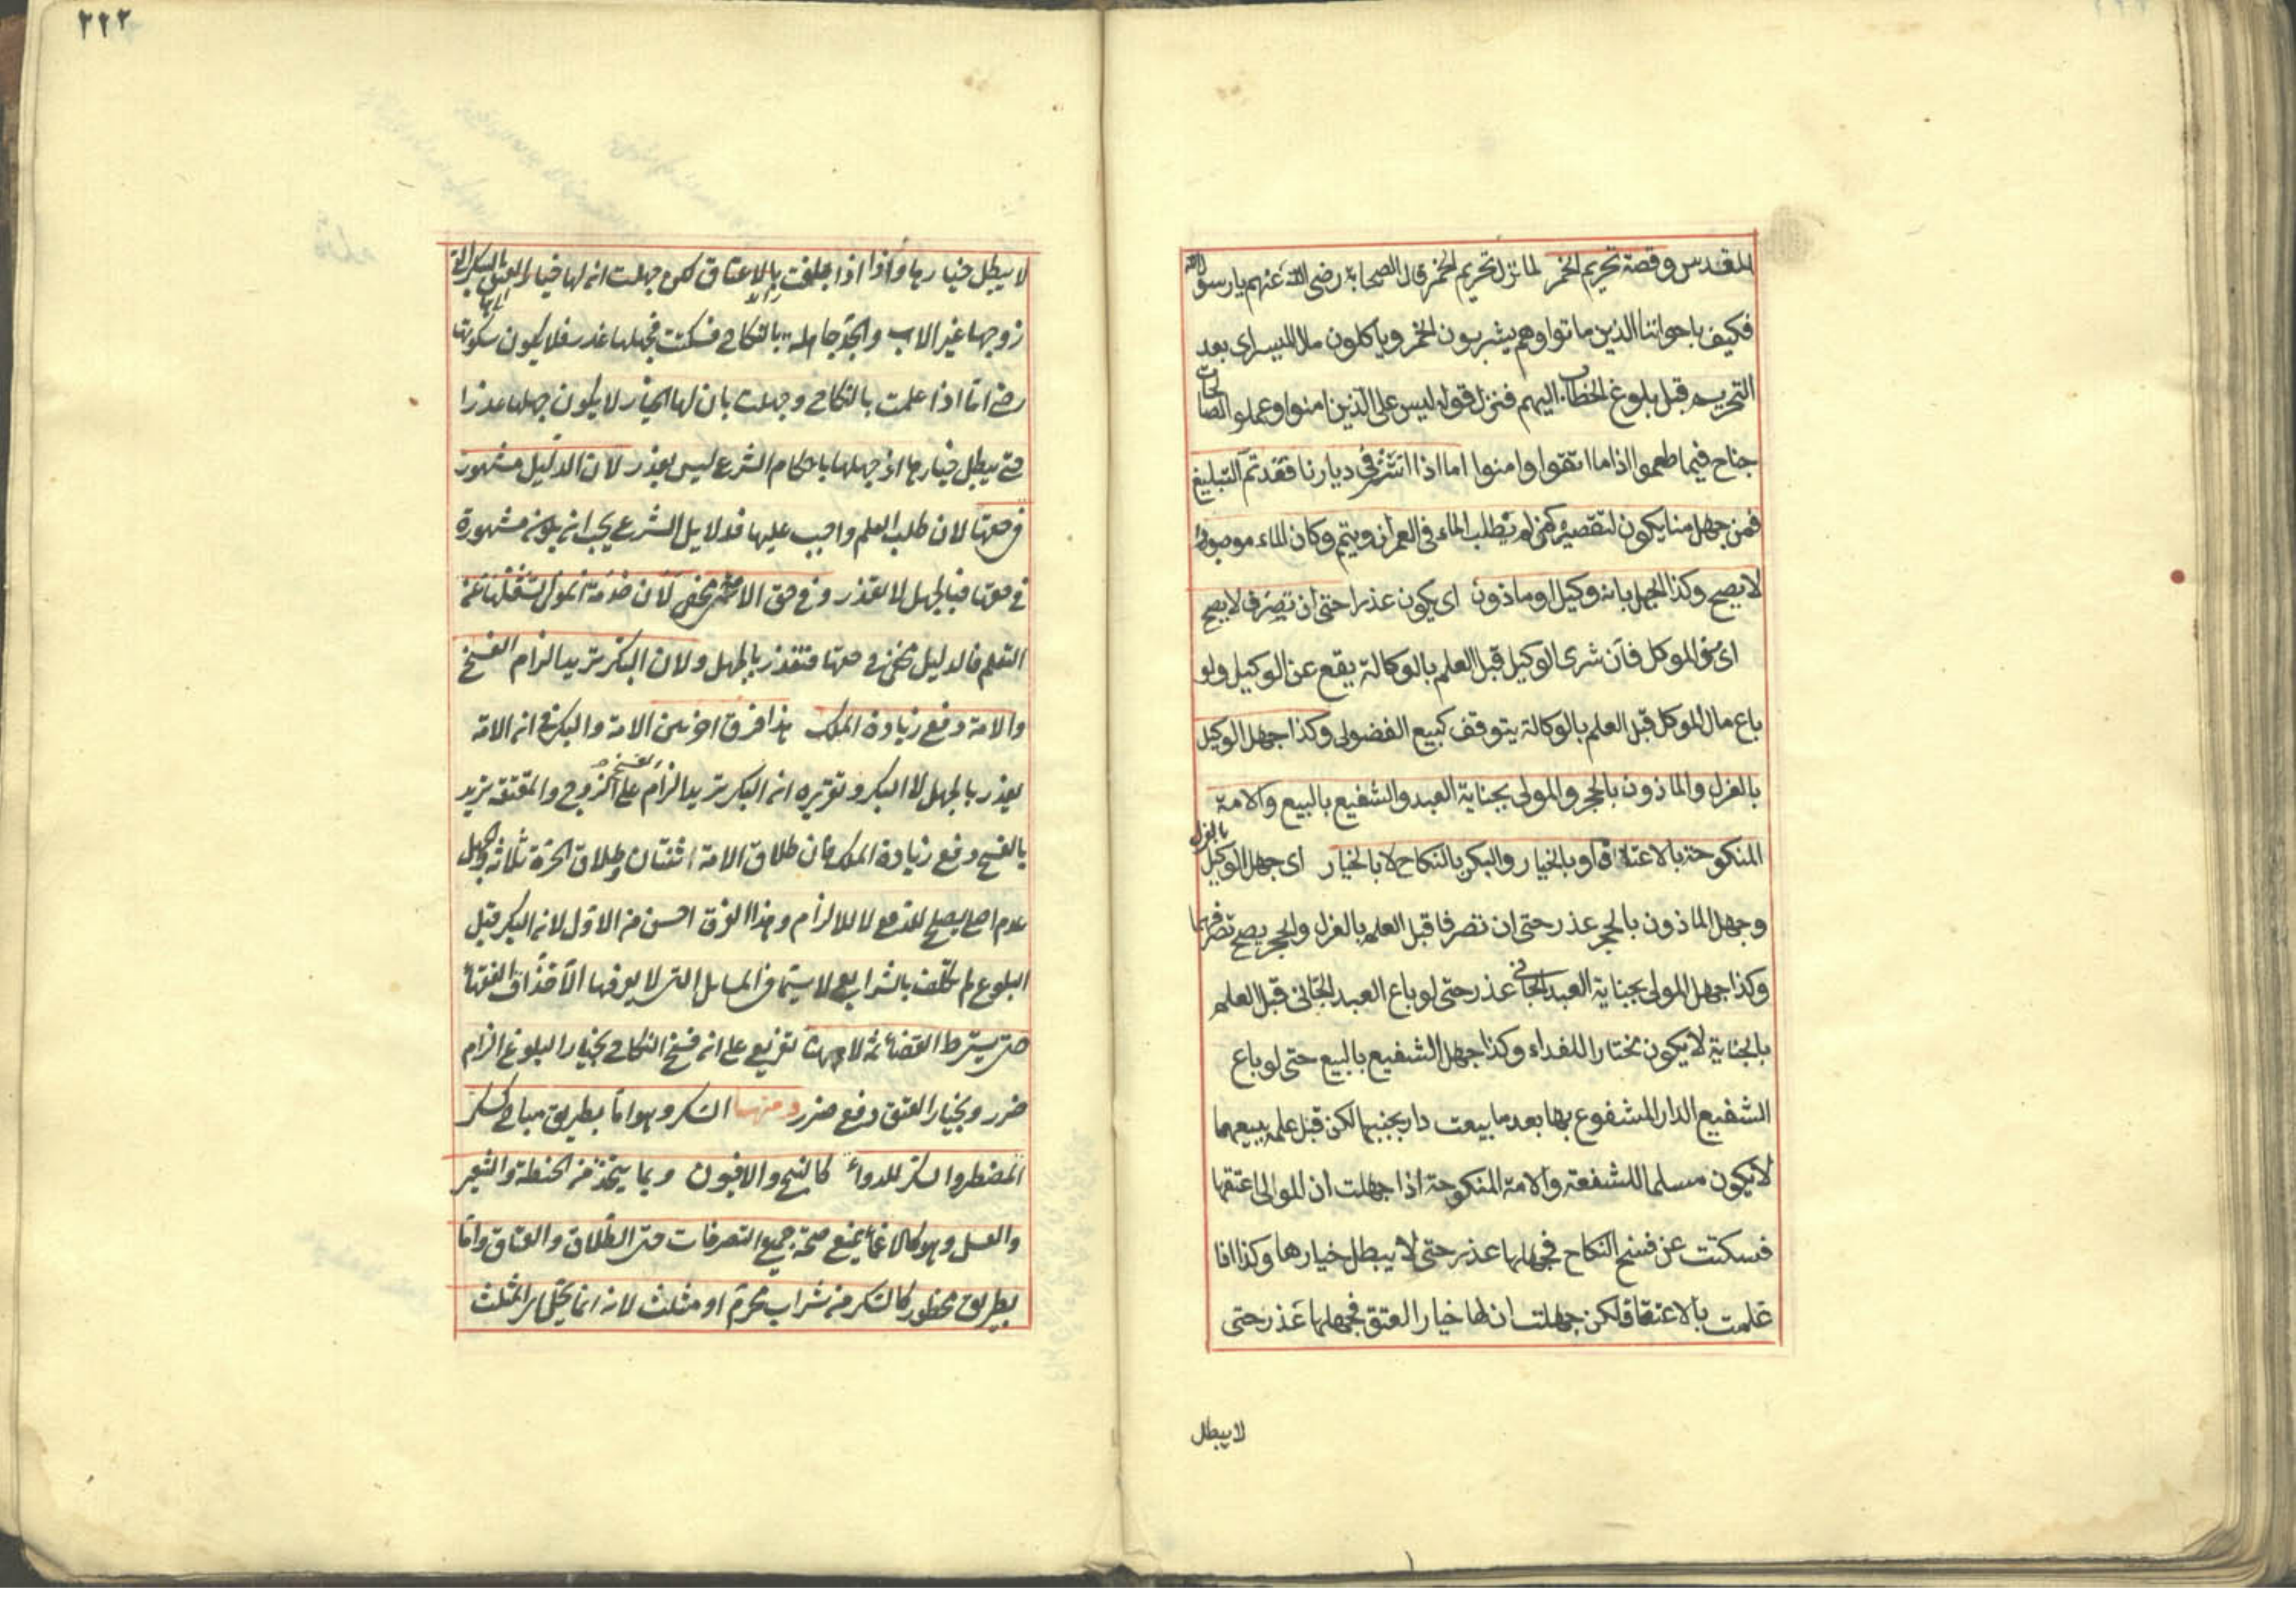 المقدس وقصة تحريم الخمر لما نزل تحريم الخمر قال الصحابة رضى الله عنهم يا رسول الله
فكيف باخواننا الذين ماتوا وهم يشربون الخمر وياكلون مال الميسر اى بعد
التحريم قبل بلوغ الخطاب اليهم فنزل قوله ليس على الذين امنوا وعملوا الصالحات
جناح فيما طعموا اذا ما اتقوا وامنوا اما اذا انتشر فى ديارنا فقد تم التبليغ
فمن جهل منا يكون لتقصيره كمن لم يطلب الماء فى العمران وتيمم وكان الماء موجودا
لا يصح وكذا الجهل بانه وكيل او ماذون اى يكون عذرا حتى ان تصرف لا يصح
اى من الموكل فان شرى الوكيل قبل العلم بالوكالة يقع عن الوكيل ولو
باع مال الموكل قبل العلم بالوكالة يتوقف كبيع الفضولى وكذا جهل الوكيل
بالعزل والماذون بالحجر والمولى بجناية العبد والشفيع بالبيع والامة
المنكوحة بالاعتاق او بالخيار والبكر بالنكاح لا بالخيار اى جهل الوكيل بالعزل
وجهل الماذون بالحجر عذر حتى ان تصرفا قبل العلم بالعزل والحجر يصح تصرفهما
وكذا جهل المولى بجناية العبد الجانى عذر حتى لو باع العبد الجانى قبل العلم
بالجناية لا يكون مختارا للفداء وكذا جهل الشفيع بالبيع حتى لو باع
الشفيع الدار المشفوع بها بعد ما بيعت دار بجنبها لكن قبل علمه ببيعها
لا يكون مسلما للشفعة والامة المنكوحة اذا جهلت ان المولى اعتقها
فسكتت عن فسخ النكاح فجهلها عذر حتى لا يبطل خيارها وكذا اذا
علمت بالاعتاق لكن جهلت ان لها خيار العتق فجهلها عذر حتى
لا يبطل
٢٢٢
لا يبطل خيارها واذا اذا بلغت بالاعتاق لكن جهلت انه لها خيار العتق بالبكر التى
زوجها غير الاب والجد جاهلة بالنكاح فسكتت فجهلها عذر فلا يكون سكوتها
رضا اما اذا علمت بالنكاح وجهلت بان لها الخيار لا يكون جهلها عذرا
حتى يبطل خيارها اذ جهلها باحكام الشرع ليس بعذر لان الدليل مشهور
فى حقها لان طلب العلم واجب عليها فدلايل الشرع يجب ان يكون مشهورة
فى حقها فبالجهل لا تعذر وفى حق الامة مخفى لان خدمة المولى تشغلها عن
التعلم فالدليل مخفى فى حقها فتعذر بالجهل ولان البكر تريد الزام الفسخ
والامة دفع زيادة الملك هذا فرق اخر بين الامة والبكر فى ان الامة
يعذر بالجهل لا البكر وتقريره ان البكر تريد الزام الفسخ على الزوج والمعتقة تريد
بالفسخ دفع زيادة الملك فان طلاق الامة اثنتان وطلاق الحرة ثلاثة والجهل
عدم اصلى يصلح للدفع لا للالزام وهذا الفرق احسن من الاول لانه البكر قبل
البلوغ لم تكلف بالشرايع لا سيما فى المسايل التى لا يعرفها الا حذاق الفقهاء
حتى يشترط القضاء ثمة لا ههنا تفريع على ان فسخ النكاح بخيار البلوغ الزام
ضرر وبخيار العتق دفع ضرر ومنها السكر وهو اما بطريق مباح كسكر
المضطر والسكر للدواء كالبنج والافيون وبما يتخذ من الحنطة والشعير
والعسل وهو كالاغماء يمنع صحة جميع التصرفات حتى الطلاق والعتاق واما
بطريق محظور كالسكر من شراب محرم او مثلث لانه انما يحل المثلث